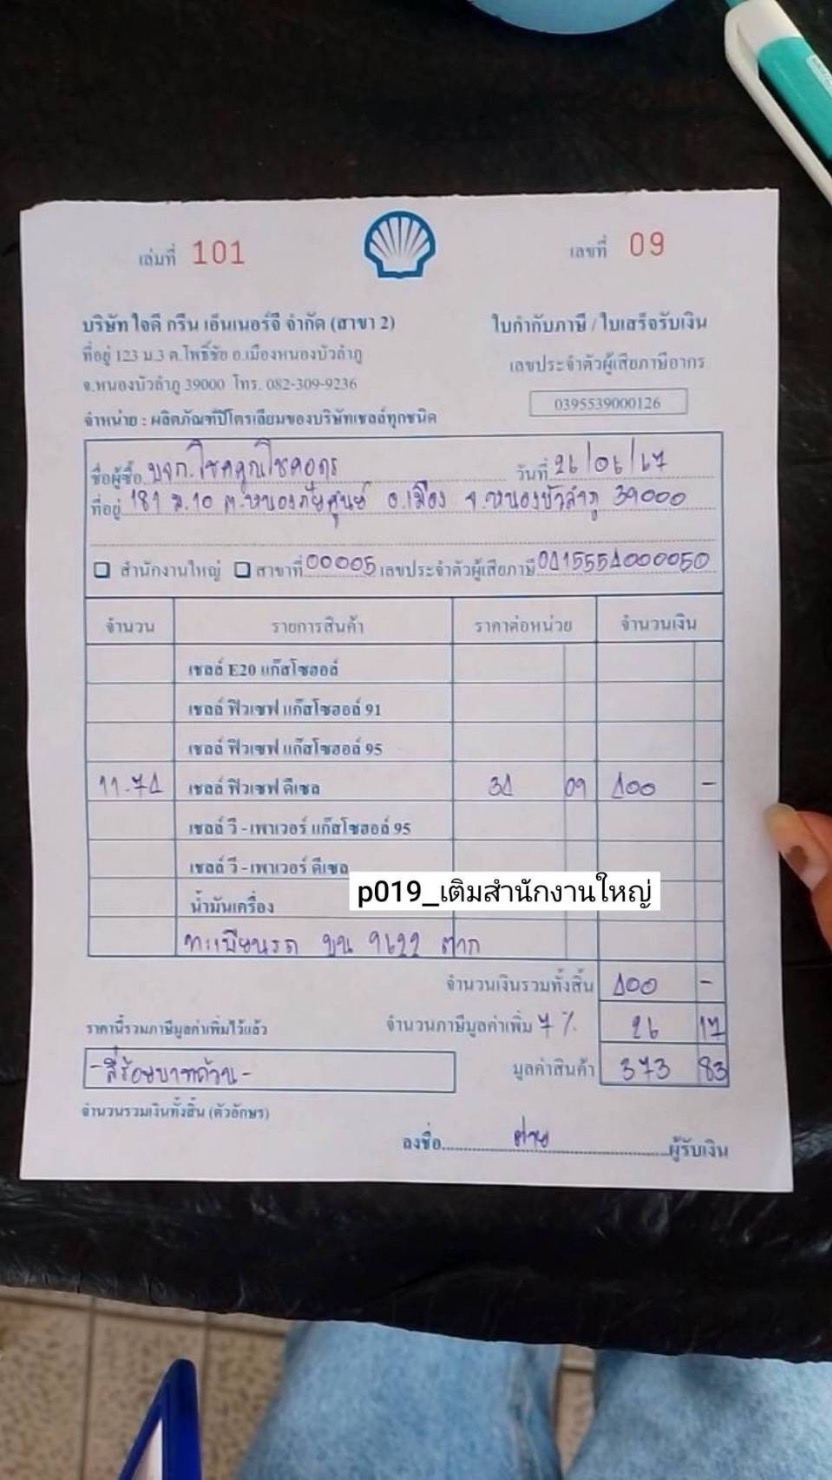 เล่มที่ 101
เลขที่ 09
บริษัท ใจดี กรีน เอ็นเนอร์จี จำกัด (สาขา 2)
ใบกำกับภาษี / ใบเสร็จรับเงิน
ที่อยู่ 123 ม.3 ต.โพธิ์ชัย อ.เมืองหนองบัวลำภู
เลขประจำตัวผู้เสียภาษีอากร
จ.หนองบัวลำภู 39000 โทร. 082-309-9236
0395539000126
จำหน่าย : ผลิตภัณฑ์ปิโตรเลียมของบริษัทเชลล์ทุกชนิด
ชื่อผู้ซื้อ บจก.โชคคูณโชคอุดร วันที่ 26/06/67
ที่อยู่ 181 ม.10 ต.หนองภัยศูนย์ อ.เมือง จ.หนองบัวลำภู 39000
สำนักงานใหญ่ สาขาที่ 00005 เลขประจำตัวผู้เสียภาษี 0415554000050
จำนวน รายการสินค้า ราคาต่อหน่วย จำนวนเงิน
เชลล์ E20 แก๊สโซฮอล์
เชลล์ ฟิวเซฟ แก๊สโซฮอล์ 91
เชลล์ ฟิวเซฟ แก๊สโซฮอล์ 95
11.74 เชลล์ ฟิวเซฟ ดีเซล 34 09 400 -
เชลล์ วี - เพาเวอร์ แก๊สโซฮอล์ 95
เชลล์ วี - เพาเวอร์ ดีเซล
p019_เติมสำนักงานใหญ่
น้ำมันเครื่อง
ทะเบียนรถ ขน 9622 ตาก
จำนวนเงินรวมทั้งสิ้น 400 -
ราคานี้รวมภาษีมูลค่าเพิ่มไว้แล้ว จำนวนภาษีมูลค่าเพิ่ม 7 % 26 17
-สี่ร้อยบาทถ้วน- มูลค่าสินค้า 373 83
จำนวนรวมเงินทั้งสิ้น (ตัวอักษร)
ลงชื่อ ผู้รับเงิน